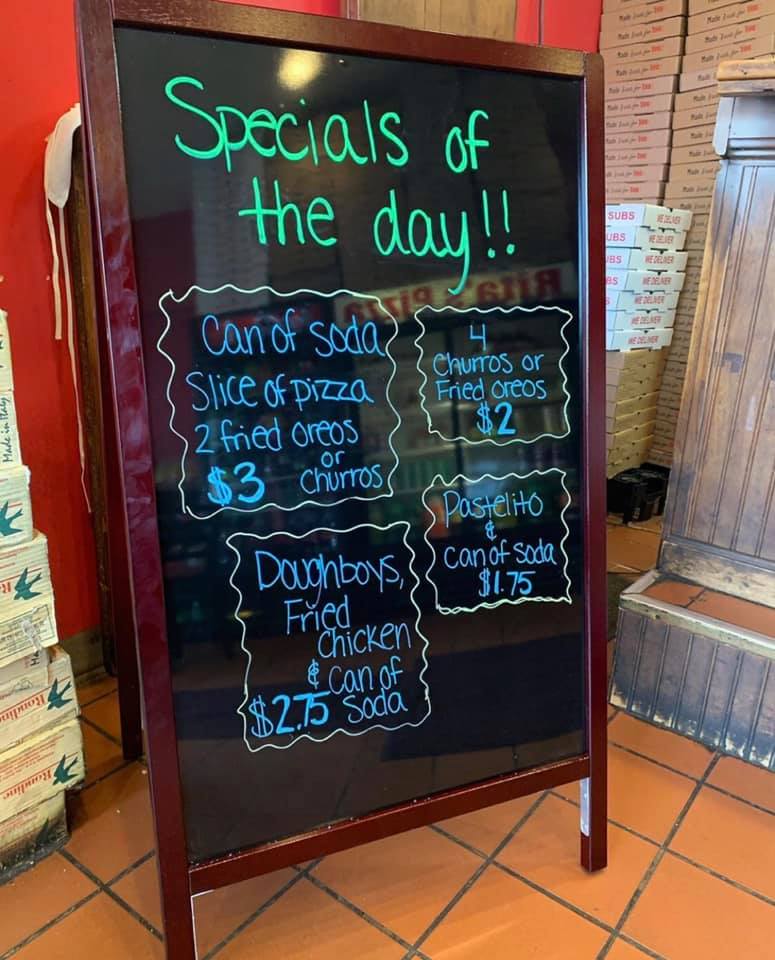 Specials of
the day!!
Can of soda
Slice of pizza
2 fried oreos
or
$3 Churros
4
Churros or
Fried oreos
$2
Pastelito
&
can of soda
$1.75
Doughboys,
Fried
Chicken
& Can of
$2.75 Soda
Rita's Pizza
SUBS WE DELIVER
UBS WE DELIVER
UBS WE DELIVER
BS WE DELIVER
WE DELIVER
WE DELIVER
WE DELIVER
Made Just for You
Made in Italy
Rondine
Rondine